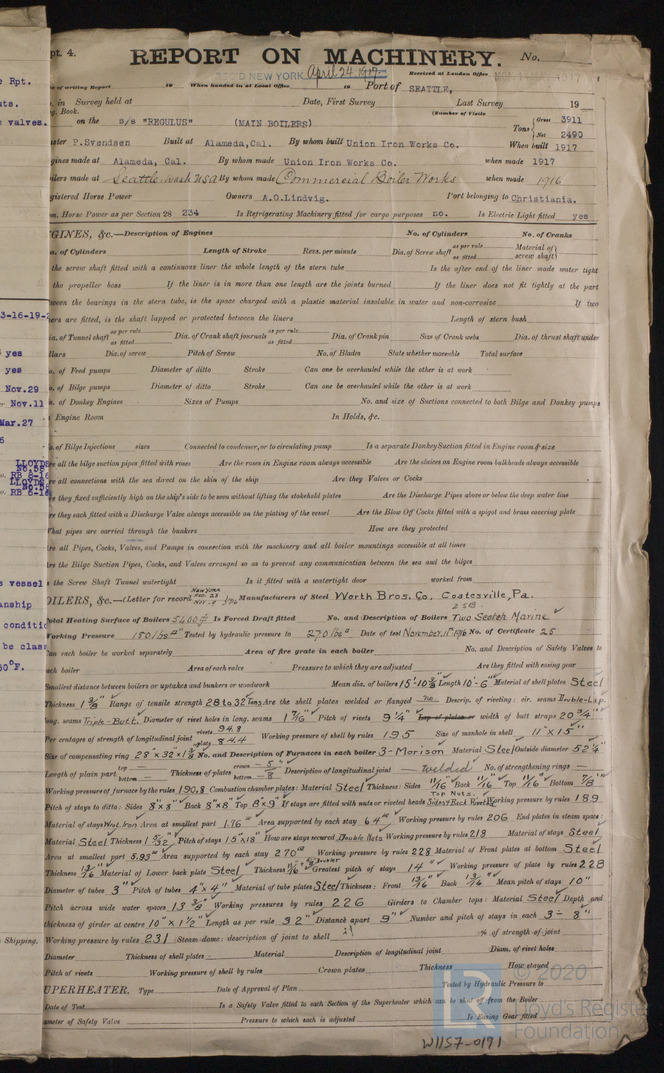 pt. 4.
REPORT ON MACHINERY. No.
REC'D NEW YORK April 24 1917
of writing Report 19 When handed in at Local Office 19 Port of SEATTLE, Received at London Office
in Survey held at Date, First Survey Last Survey 19
Book. (Number of Visits
on the S/S "REGULUS" (MAIN BOILERS) Tons Gross 3911 Net 2490
ster P.Svendsen Built at Alameda, Cal. By whom built Union Iron Works Co. When built 1917
gines made at Alameda, Cal. By whom made Union Iron Works Co. when made 1917
ilers made at Seattle Wash USA By whom made Commercial Boiler Works when made 1916
gistered Horse Power Owners A.O.Lindvig. Port belonging to Christiania.
m. Horse Power as per Section 28 234 Is Refrigerating Machinery fitted for cargo purposes no. Is Electric Light fitted yes
GINES, &c.—Description of Engines No. of Cylinders No. of Cranks
a. of Cylinders Length of Stroke Revs. per minute Dia. of Screw shaft as per rule as fitted Material of screw shaft
the screw shaft fitted with a continuous liner the whole length of the stern tube Is the after end of liner made water tight
the propeller boss If the liner is in more than one length are the joints burned If the liner does not fit tightly at the part
ween the bearings in the stern tube, is the space charged with a plastic material insoluble in water and non-corrosive If two
ers are fitted, is the shaft lapped or protected between the liners Length of stern bush
ia. of Tunnel shaft as per rule as fitted Dia. of Crank shaft journals as per rule as fitted Dia. of Crank pin Size of Crank webs Dia. of thrust shaft under
llars Dia. of screw Pitch of Screw No. of Blades State whether moveable Total surface
o. of Feed pumps Diameter of ditto Stroke Can one be overhauled while the other is at work
o. of Bilge pumps Diameter of ditto Stroke Can one be overhauled while the other is at work
o. of Donkey Engines Sizes of Pumps No. and size of Suctions connected to both Bilge and Donkey pumps
Engine Room In Holds, &c.
o. of Bilge Injections sizes Connected to condenser, or to circulating pump Is a separate Donkey Suction fitted in Engine room & size
re all the bilge suction pipes fitted with roses Are the roses in Engine room always accessible Are the sluices on Engine room bulkheads always accessible
re all connections with the sea direct on the skin of the ship Are they Valves or Cocks
re they fixed sufficiently high on the ship's side to be seen without lifting the stokehold plates Are the Discharge Pipes above or below the deep water line
re they each fitted with a Discharge Valve always accessible on the plating of the vessel Are the Blow Off Cocks fitted with a spigot and brass covering plate
What pipes are carried through the bunkers How are they protected
re all Pipes, Cocks, Valves, and Pumps in connection with the machinery and all boiler mountings accessible at all times
re the Bilge Suction Pipes, Cocks, and Valves arranged so as to prevent any communication between the sea and the bilges
s the Screw Shaft Tunnel watertight Is it fitted with a watertight door worked from
OILERS, &c.—(Letter for record New York Manufacturers of Steel Worth Bros. Co. Coatesville, Pa.
otal Heating Surface of Boilers 5400 Is Forced Draft fitted No. and Description of Boilers Two Scotch Marine
Working Pressure 150 lbs Tested by hydraulic pressure to 270 lbs Date of test November 11th 1916 No. of Certificate 25
Can each boiler be worked separately Area of fire grate in each boiler No. and Description of Safety Valves to
ach boiler Area of each valve Pressure to which they are adjusted Are they fitted with easing gear
Smallest distance between boilers or uptakes and bunkers or woodwork Mean dia. of boilers 15'-10 3/8" Length 10'-6" Material of shell plates Steel
Thickness 1 3/8" Range of tensile strength 28 to 32 Tons Are the shell plates welded or flanged no Descrip. of riveting: cir. seams Double-Lap.
long. seams Triple-Butt. Diameter of rivet holes in long. seams 1 7/16" Pitch of rivets 9 1/4" Lap of plates or width of butt straps 20 3/4"
Per centages of strength of longitudinal joint rivets 94.8 plate 84.4 Working pressure of shell by rules 195 Size of manhole in shell 11" x 15"
Size of compensating ring 28" x 32" x 1 3/8 No. and Description of Furnaces in each boiler 3-Morison Material Steel Outside diameter 52 1/4"
Length of plain part top bottom Thickness of plates crown bottom Description of longitudinal joint Welded No. of strengthening rings
Working pressure of furnace by the rules 190.8 Combustion chamber plates: Material Steel Thickness: Sides 11/16" Back 11/16" Top 11/16" Bottom 7/8"
Pitch of stays to ditto: Sides 8" x 8" Back 8" x 8" Top 8" x 9" If stays are fitted with nuts or riveted heads Top Nuts. Sides & Back Riveted Working pressure by rules 189
Material of stays Wrt. Iron Area at smallest part 1.76" Area supported by each stay 64" Working pressure by rules 206 End plates in steam space:
Material Steel Thickness 1 5/32" Pitch of stays 15" x 18" How are stays secured Double Nuts Working pressure by rules 218 Material of stays Steel
Area at smallest part 5.93" Area supported by each stay 270 Working pressure by rules 228 Material of Front plates at bottom Steel
Thickness 13/16" Material of Lower back plate Steel Thickness Greatest pitch of stays 14" Working pressure of plate by rules 228
Diameter of tubes 3" Pitch of tubes 4" x 4" Material of tube plates Steel Thickness: Front 13/16" Back 13/16" Mean pitch of stays 10"
Pitch across wide water spaces 13 3/8" Working pressures by rules 226 Girders to Chamber tops: Material Steel Depth and
thickness of girder at centre 10" x 1 1/2" Length as per rule 32" Distance apart 9" Number and pitch of stays in each 3- 8"
Working pressure by rules 231 Steam dome: description of joint to shell % of strength of joint
Diameter Thickness of shell plates Material Description of longitudinal joint Diam. of rivet holes
Pitch of rivets Working pressure of shell by rules Crown plates Thickness How stayed
UPERHEATER. Type Date of Approval of Plan Tested by Hydraulic Pressure to
Date of Test Is a Safety Valve fitted to each Section of the Superheater which can be shut off from the Boiler
ameter of Safety Valve Pressure to which each is adjusted Is Easing Gear fitted
W1157-0191
© 2020
Lloyd's Register
Foundation
e Rpt.
ts.
e valves.
3-16-19-2
yes
yes
Nov.29
Nov.11
Mar.27
LLOYDS
RB 6-16
s vessel
anship
conditio
be class
60°F.
Shipping.